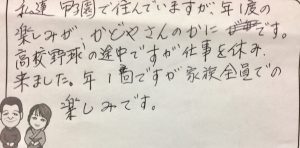 私達 甲子園で住んでいますが、年1度の
楽しみが、かどやさんのかにです。
高校野球の途中ですが仕事を休み、
来ました。年1回ですが家族全員での
楽しみです。